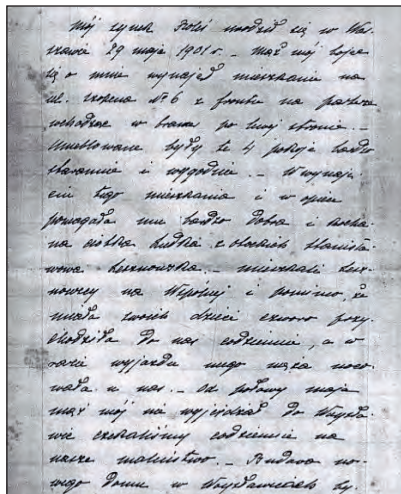 Mój synek Boluś urodził się w War-
szawie 29 maja 1901 r. – Mąż mój bojąc
się o mnie wynajął mieszkanie na
ul. № 6 z frontu na parterze
wchodząc w bramę po lewej stronie. –
Umeblowane były te 4 pokoje bardzo
starannie i wygodnie. – W wynaję-
ciu tego mieszkania i w opiece
pomagała mu bardzo dobra i kocha-
na ciotka Ludka z Stanisła-
wowa – mieszkali
na Wspólnej i pomimo, że
miała swoich dzieci czworo przy-
chodziła do nas codziennie, a w
razie wyjazdu mego męża noco-
wała u nas. – Od połowy maja
mąż mój nie wyjeżdżał do
czekaliśmy codziennie na
nasze maleństwo. – Budowa no-
wego domu w by-